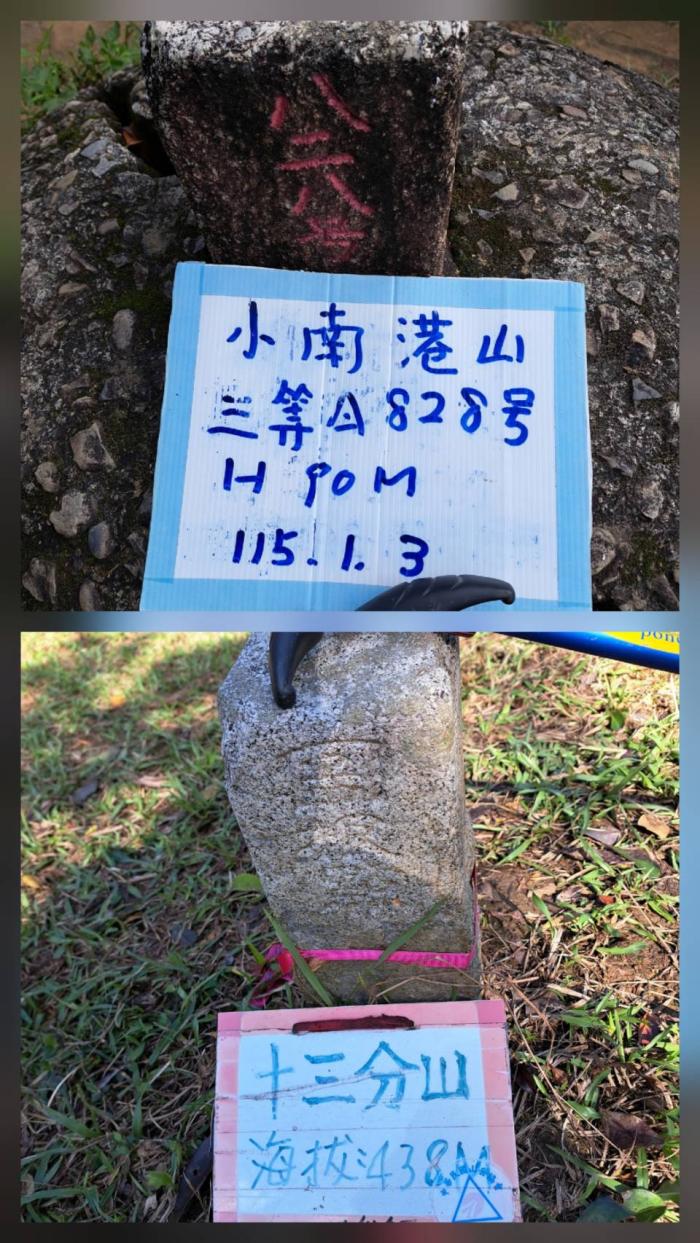 八二八号
小南港山
三等△828号
H 90M
115.1.3
pone
十三分山
海拔:438M